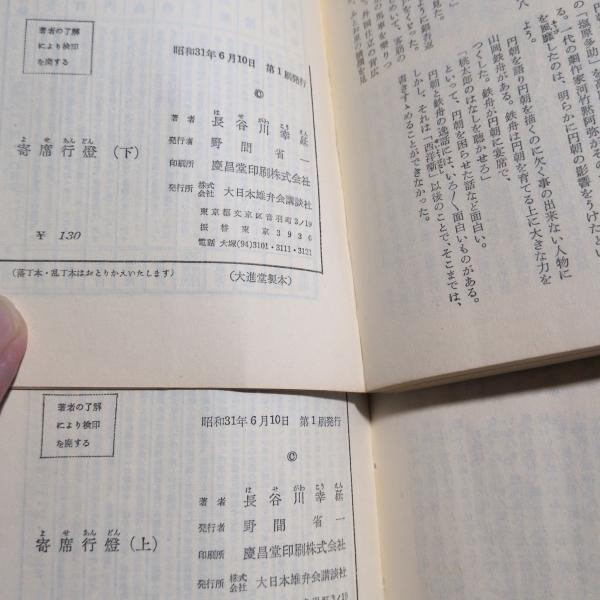 著者の了解
により検印
を廃する
昭和31年6月10日 第1刷発行
©
はせがわこうえん
著者 長谷川幸延
発行者 野間省一
印刷所 慶昌堂印刷株式会社
発行所 株式会社 大日本雄弁会講談社
東京都文京区音羽町3ノ19
振替東京3930
電話 大塚(94)3101・3111・3121
よせあんどん
寄席行燈(下)
¥130
(落丁本・乱丁本はおとりかえいたします)
(大進堂製本)
る。一代の劇作家河竹黙阿弥がその
を風靡したのは、明らかに円朝の影響をうけたといえ
よう。
円朝を語り円朝を描くのに欠く事の出来ない人物に
山岡鉄舟がある。鉄舟は円朝を育てる上に大きな力を
つくした。鉄舟が円朝に宴席で、
「桃太郎のはなしを聴かせろ」
といって、円朝を困らせた話など面白い。
円朝と鉄舟の逸話には、いろ〳〵面白いものがある。
しかし、それは「西洋衛」以後のことで、そこまでは、
書きすゝめることができなかった。
著者の了解
により検印
を廃する
昭和31年6月10日 第1刷発行
©
はせがわこうえん
著者 長谷川幸延
発行者 野間省一
印刷所 慶昌堂印刷株式会社
発行所 株式会社 大日本雄弁会講談社
よせあんどん
寄席行燈(上)